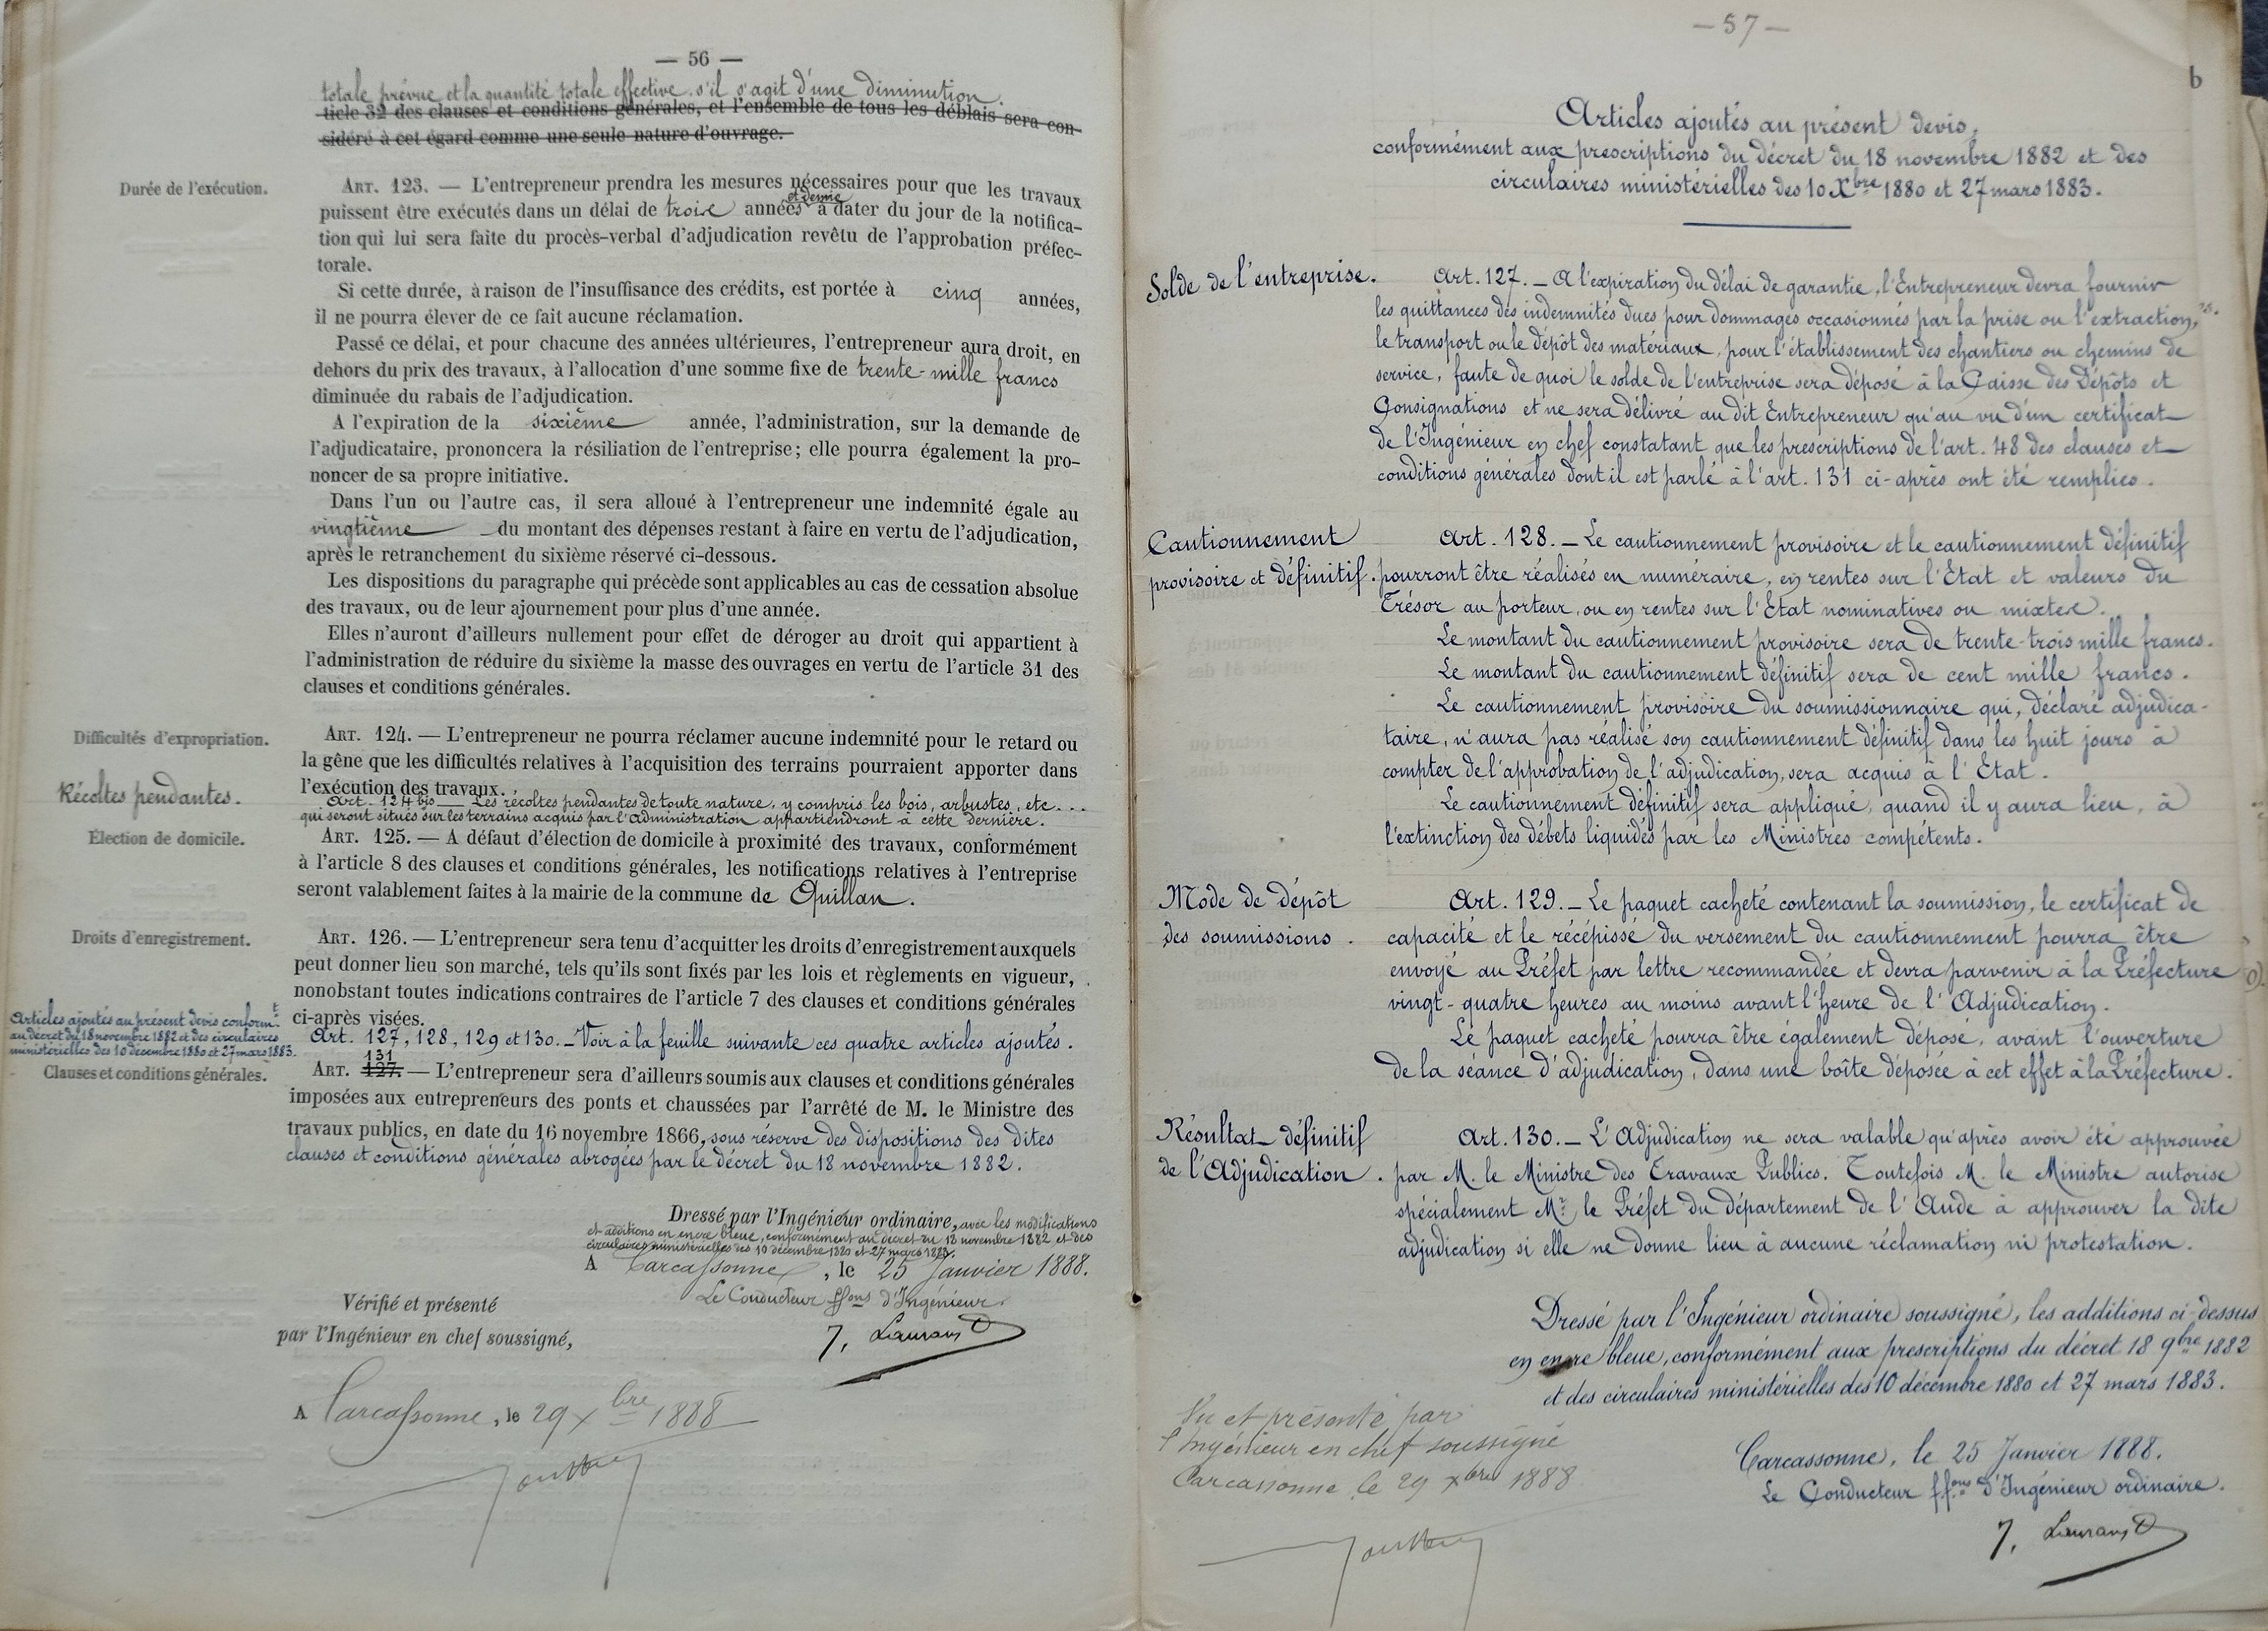 — 56 —
totale prévue et la quantité totale effective, s'il s'agit d'une diminution.
ticle 32 des clauses et conditions générales, et l'ensemble de tous les déblais sera con-
sidéré à cet égard comme une seule nature d'ouvrage.
Durée de l'exécution.
ART. 123. — L'entrepreneur prendra les mesures nécessaires pour que les travaux
et demie
puissent être exécutés dans un délai de trois années à dater du jour de la notifica-
tion qui lui sera faite du procès-verbal d'adjudication revêtu de l'approbation préfec-
torale.
Si cette durée, à raison de l'insuffisance des crédits, est portée à cinq années,
il ne pourra élever de ce fait aucune réclamation.
Passé ce délai, et pour chacune des années ultérieures, l'entrepreneur aura droit, en
dehors du prix des travaux, à l'allocation d'une somme fixe de trente-mille francs
diminuée du rabais de l'adjudication.
A l'expiration de la sixième année, l'administration, sur la demande de
l'adjudicataire, prononcera la résiliation de l'entreprise; elle pourra également la pro-
noncer de sa propre initiative.
Dans l'un ou l'autre cas, il sera alloué à l'entrepreneur une indemnité égale au
vingtième du montant des dépenses restant à faire en vertu de l'adjudication,
après le retranchement du sixième réservé ci-dessous.
Les dispositions du paragraphe qui précède sont applicables au cas de cessation absolue
des travaux, ou de leur ajournement pour plus d'une année.
Elles n'auront d'ailleurs nullement pour effet de déroger au droit qui appartient à
l'administration de réduire du sixième la masse des ouvrages en vertu de l'article 31 des
clauses et conditions générales.
Difficultés d'expropriation.
ART. 124. — L'entrepreneur ne pourra réclamer aucune indemnité pour le retard ou
la gêne que les difficultés relatives à l'acquisition des terrains pourraient apporter dans
l'exécution des travaux.
Récoltes pendantes.
Art. 124 bis — Les récoltes pendantes de toute nature, y compris les bois, arbustes, etc...
qui seront situés sur les terrains acquis par l'administration appartiendront à cette dernière.
Élection de domicile.
ART. 125. — A défaut d'élection de domicile à proximité des travaux, conformément
à l'article 8 des clauses et conditions générales, les notifications relatives à l'entreprise
seront valablement faites à la mairie de la commune de Quillan.
Droits d'enregistrement.
ART. 126. — L'entrepreneur sera tenu d'acquitter les droits d'enregistrement auxquels
peut donner lieu son marché, tels qu'ils sont fixés par les lois et règlements en vigueur,
nonobstant toutes indications contraires de l'article 7 des clauses et conditions générales
ci-après visées.
Articles ajoutés au présent devis conformt
au décret du 18 novembre 1882 et des circulaires
ministérielles des 10 décembre 1880 et 27 mars 1883.
Art. 127, 128, 129 et 130. — Voir à la feuille suivante ces quatre articles ajoutés.
Clauses et conditions générales.
131
ART. 127. — L'entrepreneur sera d'ailleurs soumis aux clauses et conditions générales
imposées aux entrepreneurs des ponts et chaussées par l'arrêté de M. le Ministre des
travaux publics, en date du 16 novembre 1866, sous réserve des dispositions des dites
clauses et conditions générales abrogées par le décret du 18 novembre 1882.
Dressé par l'Ingénieur ordinaire, avec les modifications
et additions en encre bleue, conformément au décret du 18 novembre 1882 et des
circulaires ministérielles des 10 décembre 1880 et 27 mars 1883.
A Carcassonne, le 25 Janvier 1888.
Le Conducteur ffons d'Ingénieur.
Vérifié et présenté
par l'Ingénieur en chef soussigné,
A Carcassonne, le 29 Xbre 1888
— 57 —
b
Articles ajoutés au présent devis,
conformément aux prescriptions du décret du 18 novembre 1882 et des
circulaires ministérielles des 10 Xbre 1880 et 27 mars 1883.
Solde de l'entreprise.
Art. 127. — A l'expiration du délai de garantie, l'Entrepreneur devra fournir
les quittances des indemnités dues pour dommages occasionnés par la prise ou l'extraction,
le transport ou le dépôt des matériaux, pour l'établissement des chantiers ou chemins de
service, faute de quoi le solde de l'entreprise sera déposé à la Caisse des Dépôts et
Consignations et ne sera délivré au dit Entrepreneur qu'au vu d'un certificat
de l'Ingénieur en chef constatant que les prescriptions de l'art. 48 des clauses et
conditions générales dont il est parlé à l'art. 131 ci-après ont été remplies.
Cautionnement
provisoire et définitif.
Art. 128. — Le cautionnement provisoire et le cautionnement définitif
pourront être réalisés en numéraire, en rentes sur l'Etat et valeurs du
Trésor au porteur, ou en rentes sur l'Etat nominatives ou mixtes.
Le montant du cautionnement provisoire sera de trente-trois mille francs.
Le montant du cautionnement définitif sera de cent mille francs.
Le cautionnement provisoire du soumissionnaire qui, déclaré adjudica-
taire, n'aura pas réalisé son cautionnement définitif dans les huit jours à
compter de l'approbation de l'adjudication, sera acquis à l'Etat.
Le cautionnement définitif sera appliqué, quand il y aura lieu, à
l'extinction des débets liquidés par les Ministres compétents.
Mode de dépôt
des soumissions.
Art. 129. — Le paquet cacheté contenant la soumission, le certificat de
capacité et le récépissé du versement du cautionnement pourra être
envoyé au Préfet par lettre recommandée et devra parvenir à la Préfecture
vingt-quatre heures au moins avant l'heure de l'Adjudication.
Le paquet cacheté pourra être également déposé, avant l'ouverture
de la séance d'adjudication, dans une boîte déposée à cet effet à la Préfecture.
Résultat définitif
de l'Adjudication.
Art. 130. — L'Adjudication ne sera valable qu'après avoir été approuvée
par M. le Ministre des Travaux Publics. Toutefois M. le Ministre autorise
spécialement Mr le Préfet du département de l'Aude à approuver la dite
adjudication si elle ne donne lieu à aucune réclamation ni protestation.
Dressé par l'Ingénieur ordinaire soussigné, les additions ci-dessus
en encre bleue, conformément aux prescriptions du décret 18 9bre 1882
et des circulaires ministérielles des 10 décembre 1880 et 27 mars 1883.
Carcassonne, le 25 Janvier 1888.
Le Conducteur ffons d'Ingénieur ordinaire.
Vu et présenté par
l'Ingénieur en chef soussigné
Carcassonne le 29 Xbre 1888